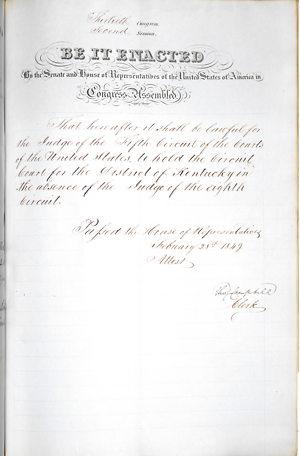 Thirtieth Congress
Second Session.
BE IT ENACTED
By the Senate and House of Representatives of the United States of America in
Congress Assembled
That hereafter it shall be lawful for
the Judge of the Fifth Circuit of the Courts
of the United States, to hold the Circuit
Court for the District of Kentucky in
the absence of the Judge of the eighth
Circuit.
Passed the House of Representatives
February 28th 1849
Attest
Tho. J. Campbell
Clerk